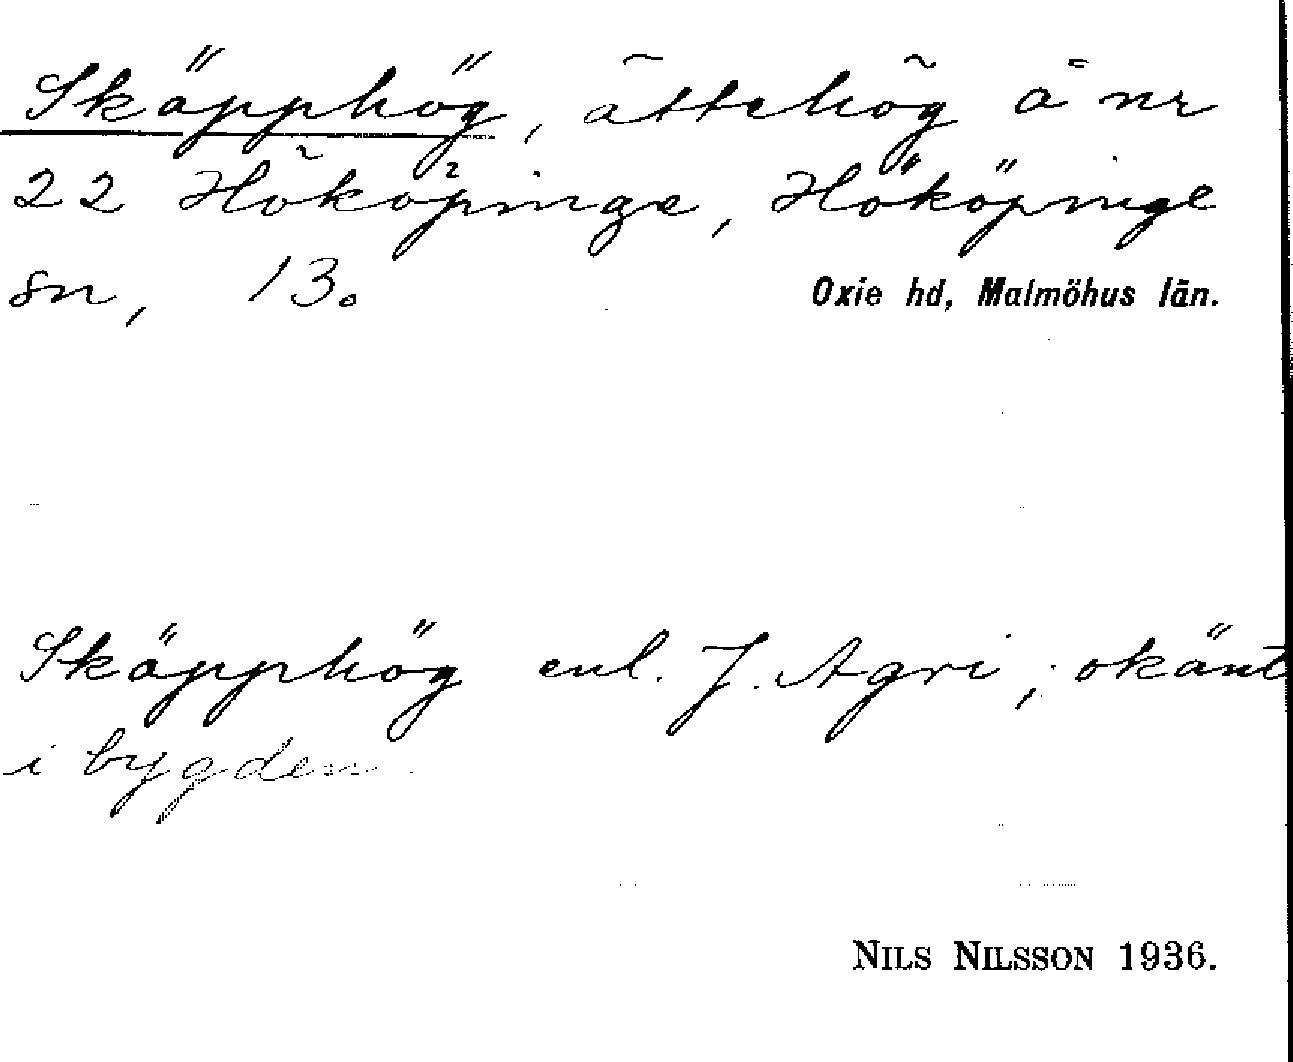 Skäpphög, ättehög å nr
22 Hököpinge, Hököpinge
sn, 13. Oxie hd, Malmöhus län.
Skäpphög enl. J. Agri; okänt
i bygden.
NILS NILSSON 1936.